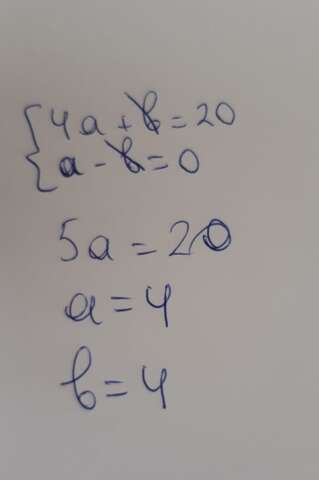 4a + b = 20
a - b = 0
5a = 20
a = 4
b = 4